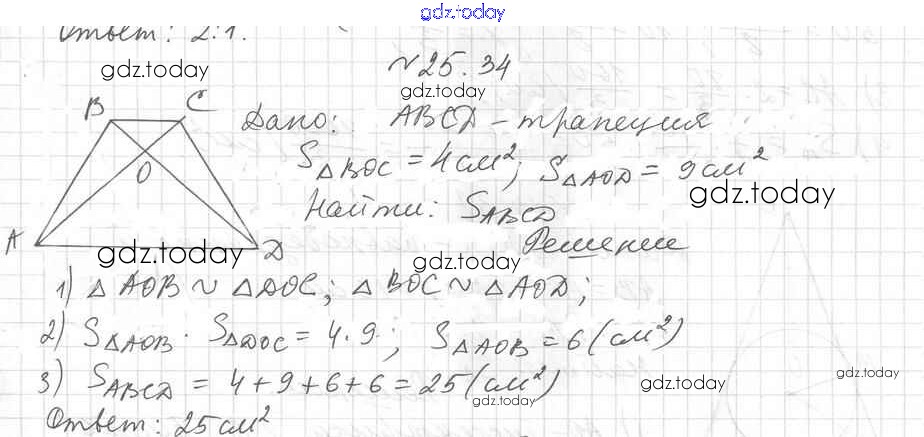 gdz.today
Ответ: 2:1.
gdz.today
№25.34
gdz.today
B C
Дано: ABCD - трапеция
S△BOC = 4 см²; S△AOD = 9 см²
O
gdz.today
Найти: SABCD
A D
Решение
gdz.today
gdz.today
1) △AOB ~ △DOC; △BOC ~ △AOD;
2) S△AOB · S△DOC = 4·9; S△AOB = 6 (см²)
3) SABCD = 4+9+6+6 = 25 (см²)
gdz.today
gdz.today
gdz.today
Ответ: 25 см²